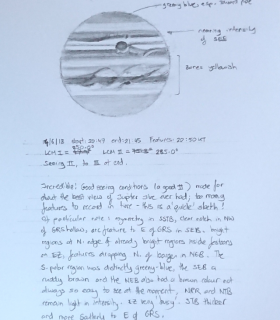 greeny-blue, esp. South pole
nearing intensity
of SEB
Zones yellowish
16/6/18 start: 20:49 end: 21:45 Features: 20:50 UT
CM I = CM II = 283.0°
Seeing II, to III at end.
Incredible! Good seeing conditions (a good II) made for
about the best view of Jupiter I've ever had; too many
features to record in fact - this is a quick sketch!
Of particular note: in SSTB, clear notch in
of GRS hollow, arc feature to E of GRS in SEB. bright
regions at N. edge of already bright regions inside festoons
in EZ, features wrapping N. of barges in NEB. The
S. polar region was distinctly greeny-blue, the SEB is
ruddy brown and the NEB also had a human colour not
always so easy to see at the moment. NPR and NTB
remain light in intensity. EZ very 'busy'. STB thicker
and more to E of GRS.